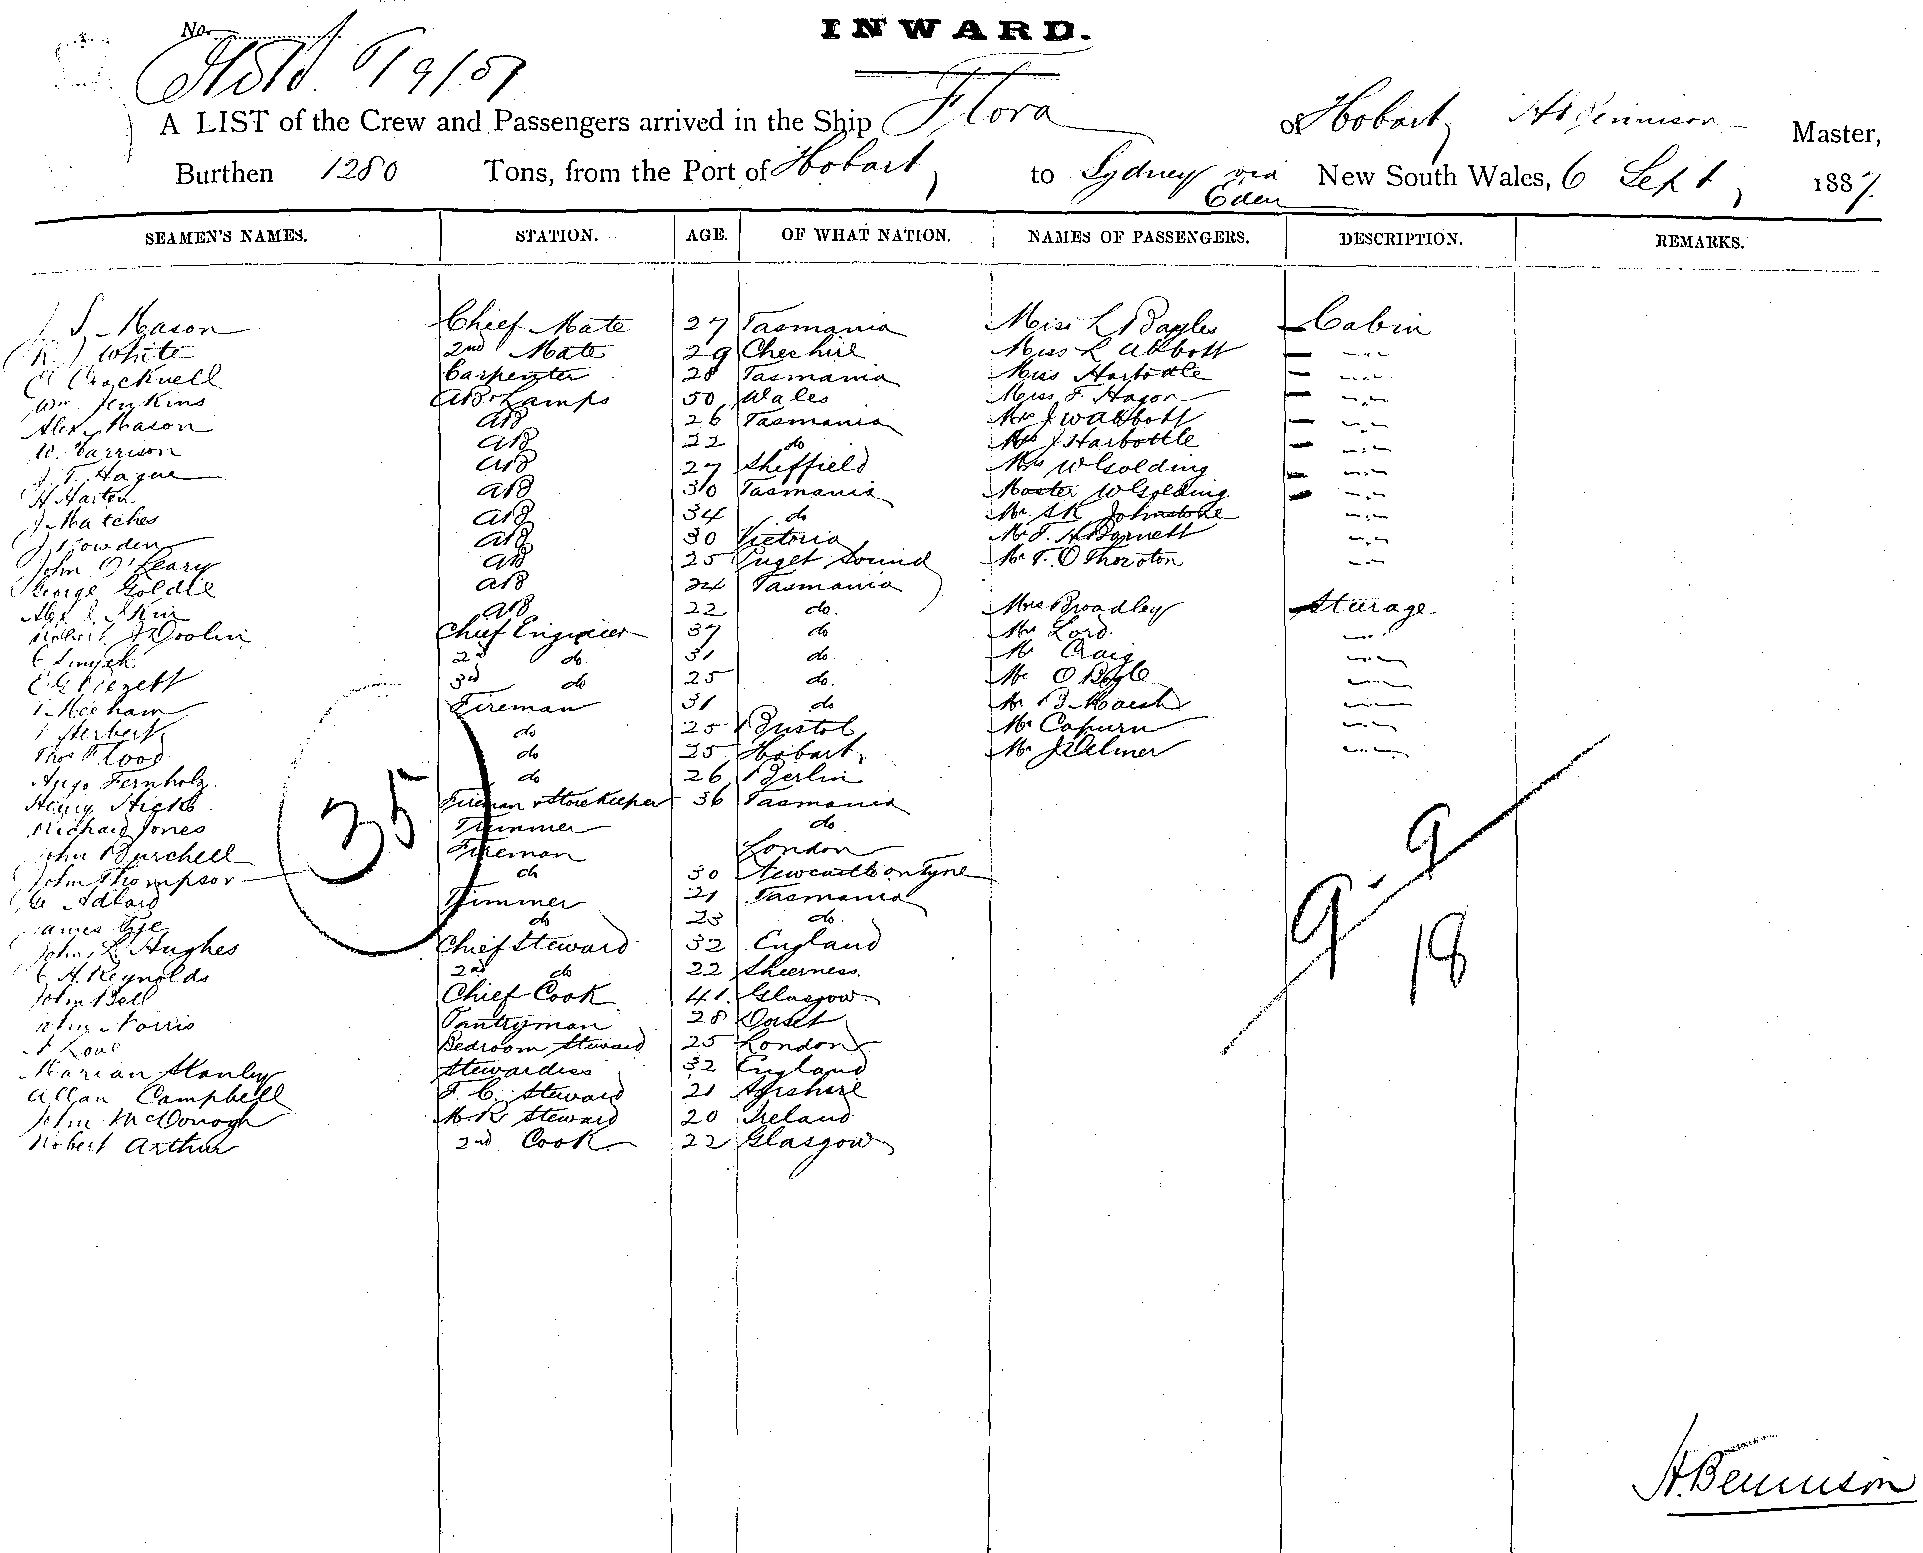 No.
INWARD.
A LIST of the Crew and Passengers arrived in the Ship Flora of Hobart, Master,
Burthen 1280 Tons, from the Port of Hobart, to Sydney via Eden New South Wales, 6 Sept, 1887.
SEAMEN'S NAMES. STATION. AGE. OF WHAT NATION. NAMES OF PASSENGERS. DESCRIPTION. REMARKS.
Mason Chief Mate 27 Tasmania Miss L Bayles Cabin
White 2nd Mate 29 Cheshire Miss L Abbott
Cracknell Carpenter 28 Tasmania Miss Harbottle
Wm. Jenkins AB & Lamps 50 Wales Miss F. Hagon
Alex. Mason AB 26 Tasmania Mrs J W Abbott
W. Harrison AB 22 do Mrs J Harbottle
J. T. Hague AB 27 Sheffield Mrs W Golding
H Harten AB 30 Tasmania Master W Golding
J Matches AB 34 do Mr Johnstone
J Howden AB 30 Victoria Mr T. H Barnett
John O'Leary AB 25 Puget Sound Mr T. O Thornton
George Goldie AB 24 Tasmania
AB 22 do. Mrs Broadley Sturage.
Robert Woolin Chief Engineer 37 do Mrs Lord.
2nd do. 31 do. Mr Craig
3rd do 25 do. Mr O Boyle
Meeham Fireman 31 do Mr B Marsh
Herbert do 25 Bristol Mr Capurn
Thos Flood do 25 Hobart, Mr J Ulmer
Fernholz do 26 Berlin
Henry Hicks Fireman & Storekeeper 36 Tasmania
Michael Jones Trimmer do.
John Burchell Fireman London
John Thompson do 30 Newcastle on Tyne
Adlard Trimmer 21 Tasmania
James do 23 do.
John L. Hughes Chief Steward 32 England
C H. Reynolds 2nd do 22 Sheerness.
John Bell Chief Cook 41. Glasgow
John Norris Pantryman 28 Dorset
Love Bedroom Steward 25 London
Marian Stanley Stewardess 32 England
Allan Campbell F. C. Steward 21 Ayrshire
John McDonogh M. R. Steward 20 Ireland
Robert Arthur 2nd Cook 22 Glasgow
35
9.9
18
H. Bennison